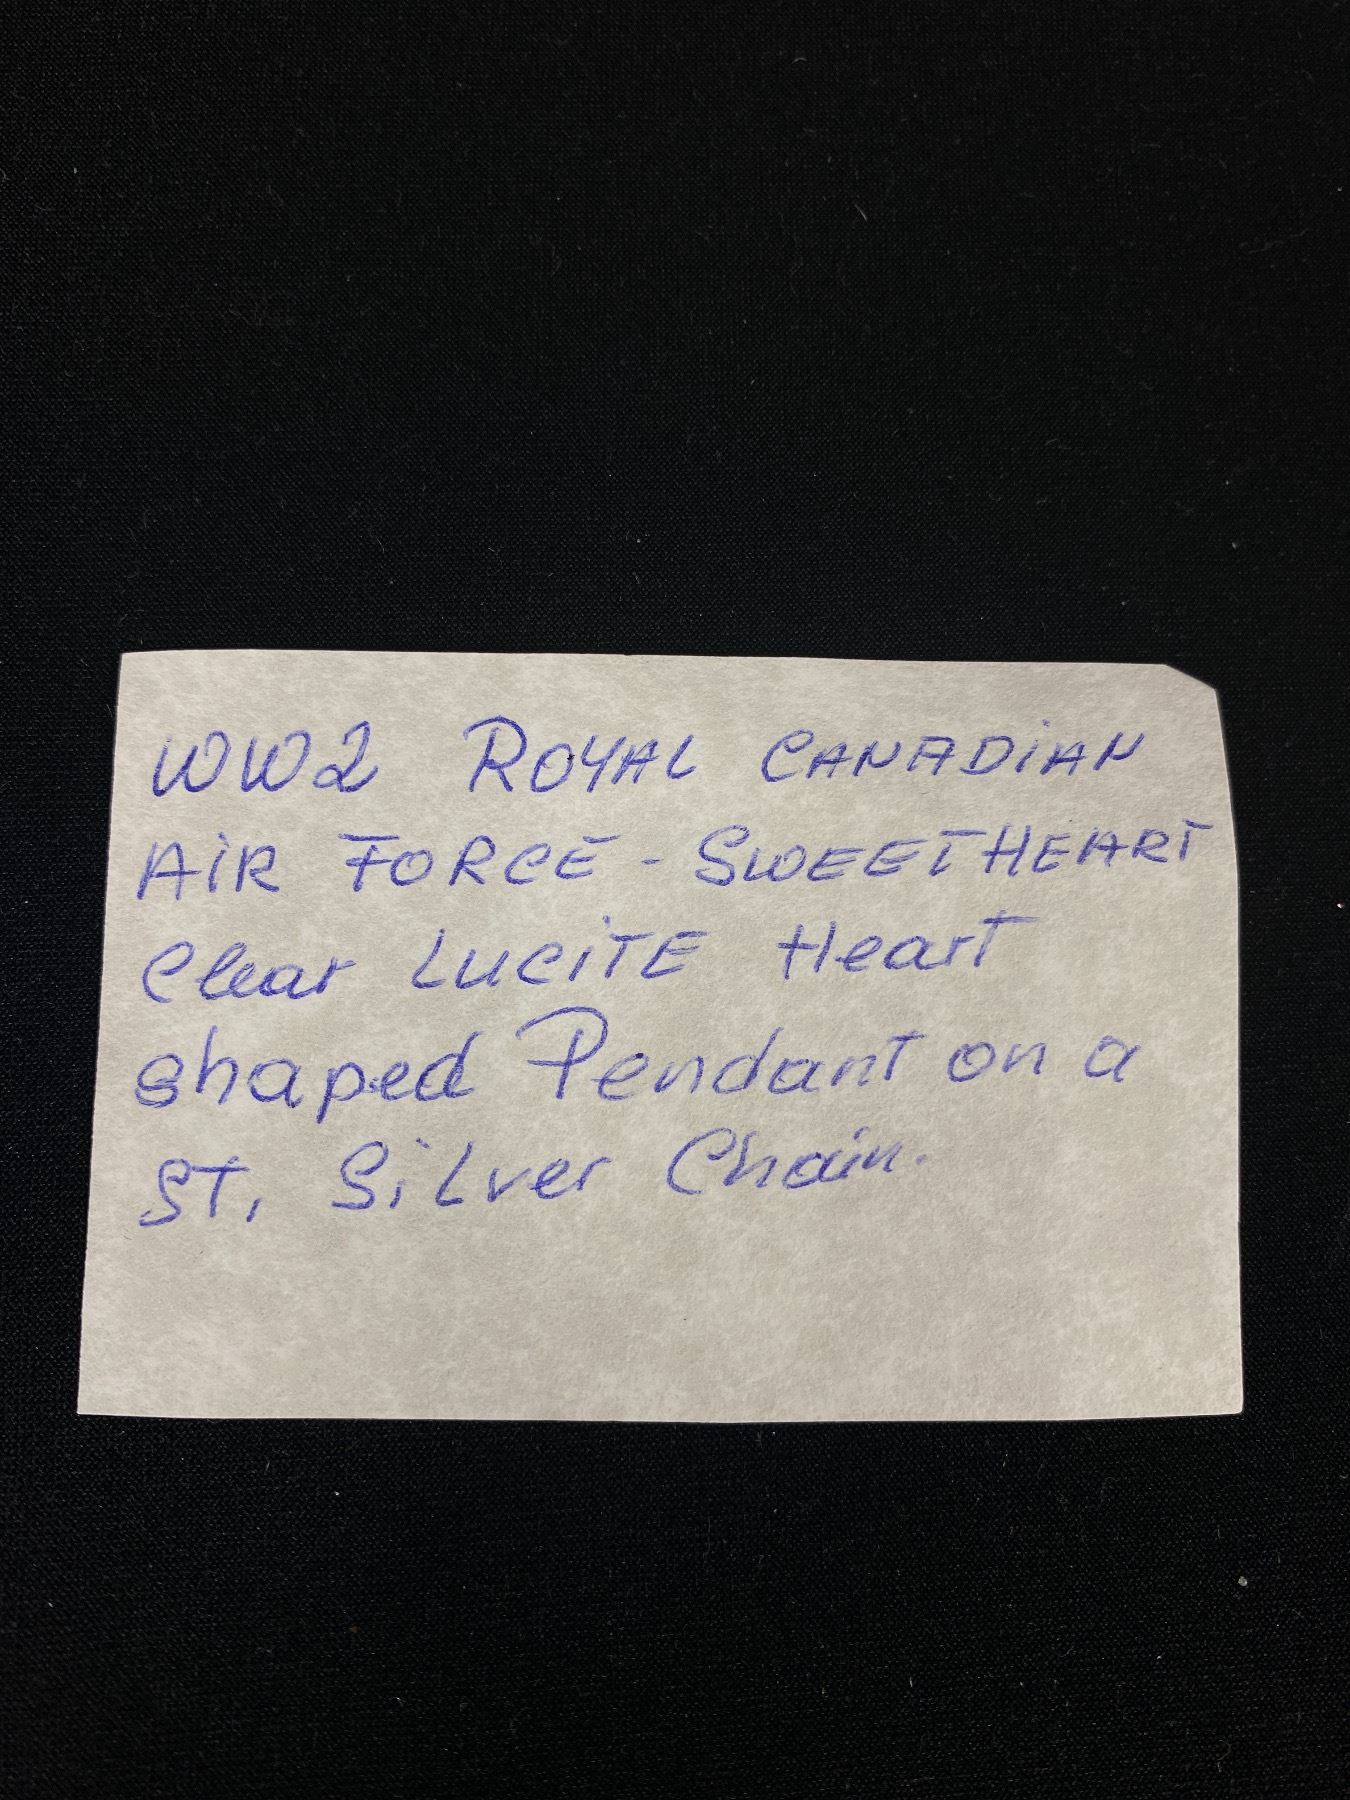 WW2 ROYAL CANADIAN
AiR FORCE - SWEETHEART
Clear LUCiTE Heart
shaped Pendant on a
ST. SiLver Chain.